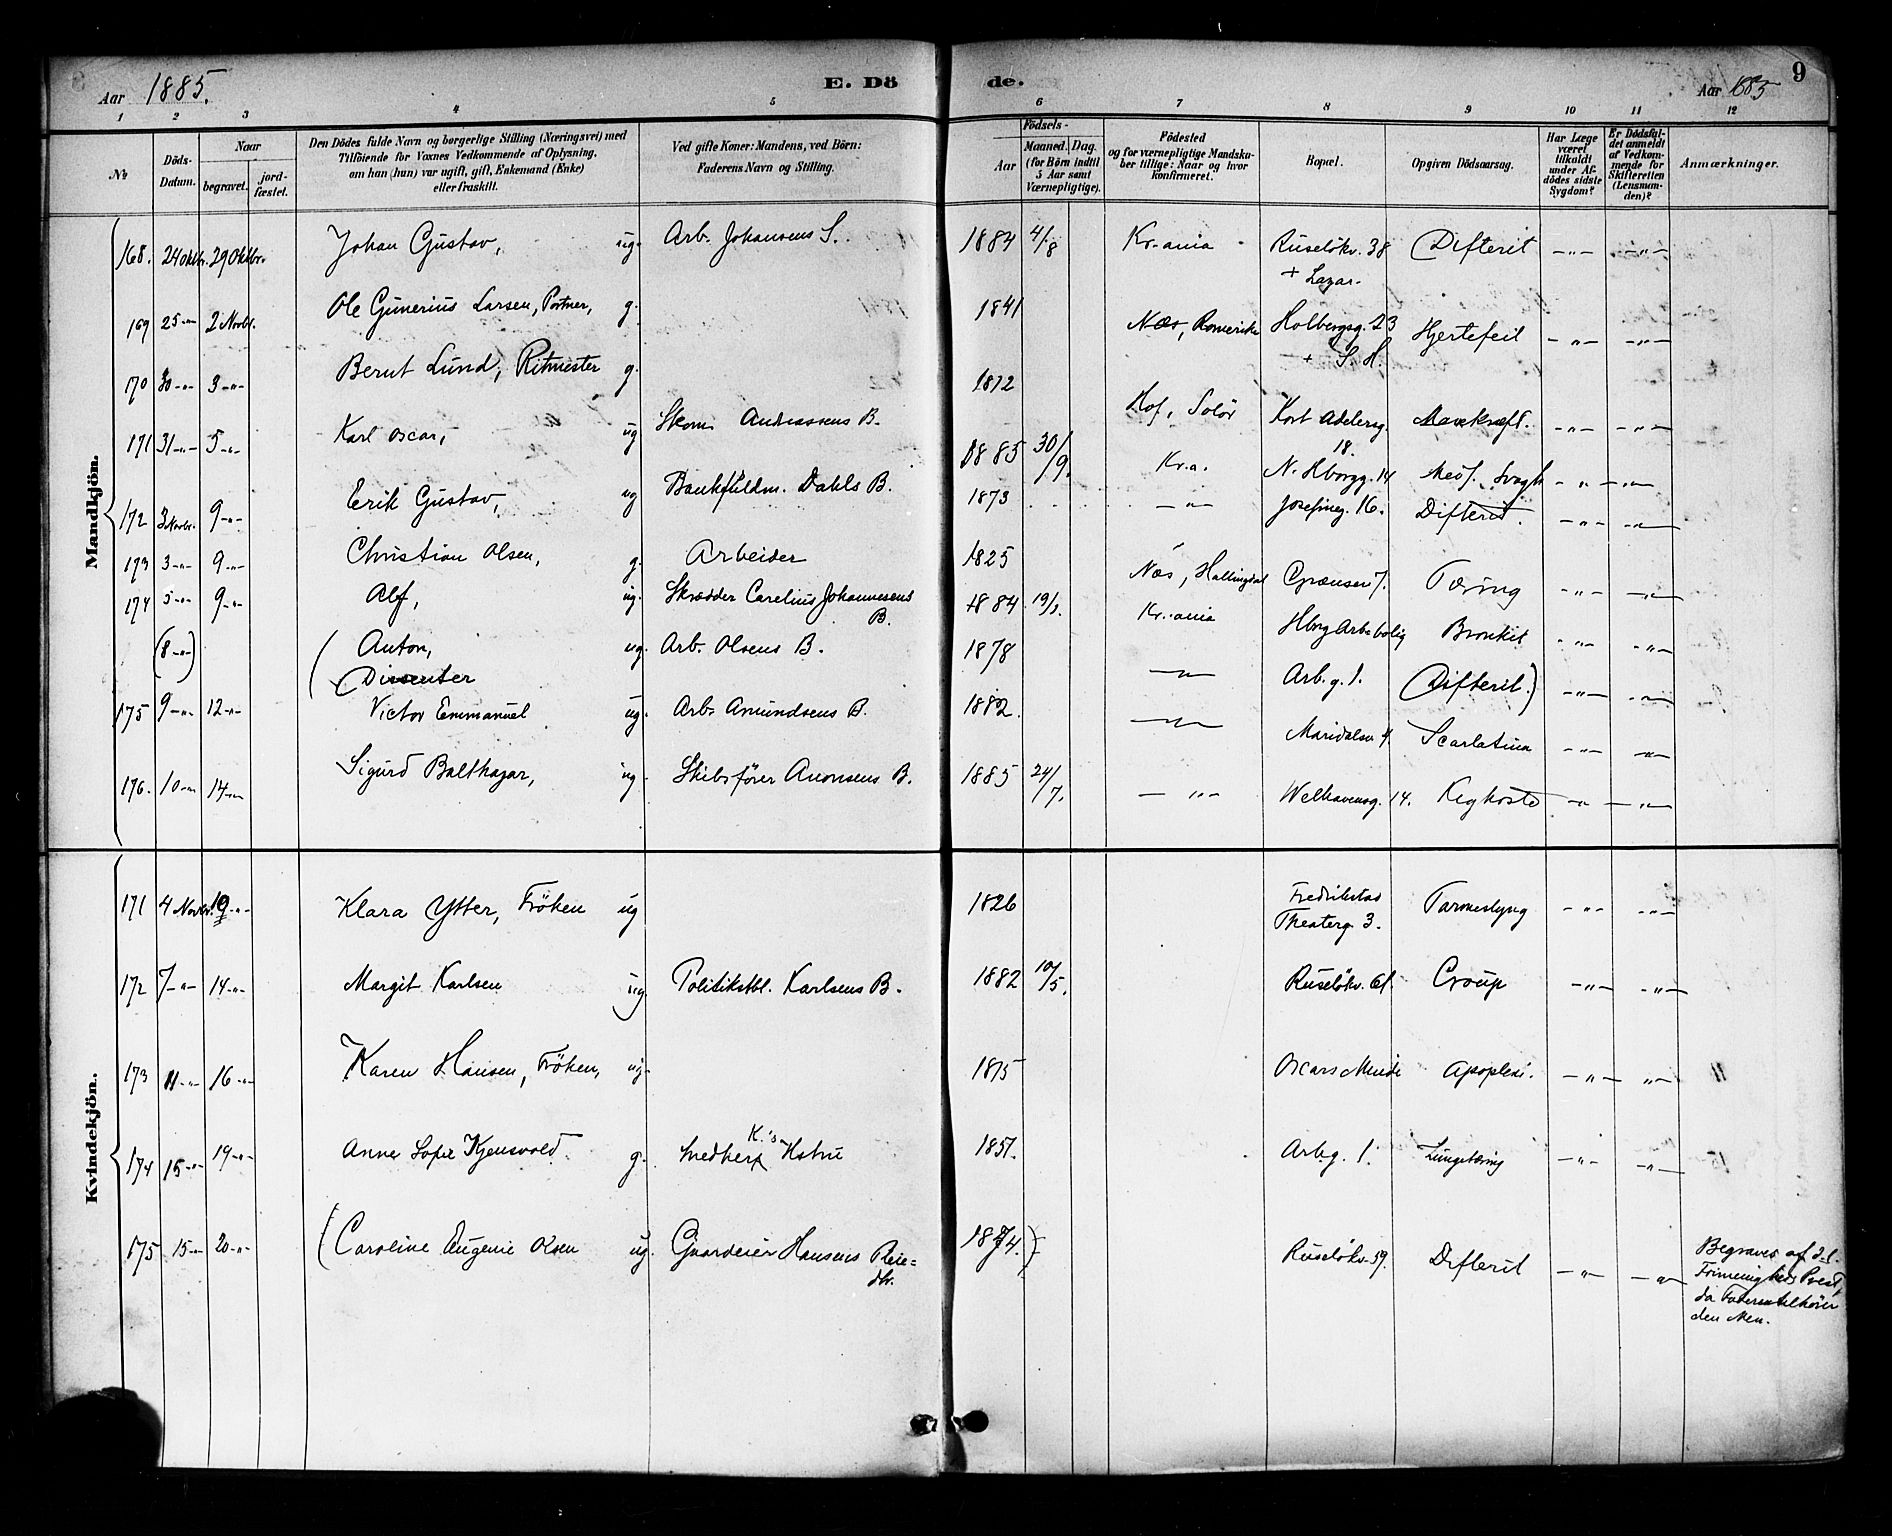 Aar 1885. E. Dö de. Aar 1885 9
1 2 3 4 5 6 7 8 9 10 11 12
No
Döds-Datum.
Naar
begravet.
jord-fæstet.
Den Dödes fulde Navn og borgerlige Stilling (Næringsvei) med
Tilföiende for Voxnes Vedkommende af Oplysning,
om han (hun) var ugift, gift, Enkemand (Enke)
eller fraskilt.
Ved gifte Koner: Mandens, ved Börn:
Faderens Navn og Stilling.
Födsels-
Aar
Maaned. Dag.
(for Börn indtil
5 Aar samt
Værnepligtige).
Födested
og for værnepligtige Mandska-
ber tillige: Naar og hvor
konfirmeret.
Bopæl.
Opgiven Dödsaarsag.
Har Læge
været
tilkaldt
under Af-
dödes sidste
Sygdom?
Er Dödsfal-
det anmeldt
af Vedkom-
mende for
Skifteretten
(Lensman-
den)?
Anmærkninger.
Mandkjön.
168. 24 Oktbr. 29 Oktbr. Johan Gustav, ug. Arb. Johansens S. 1884 4/8 Kr.ania Ruselökv. 38 Difterit -"- -"-
+ Lazar.
169 25-"- 2 Novbr. Ole Gunerius Larsen, Portner, g. 1841 Næs, Romerike Holbergsg. 23 Hjertefeil -"- -"-
+ S. H.
170 30-"- 3-"- Bernt Lund, Ritmester g. 1812 Hof, Solör Kort Adelersg. 18. Mavekræft. -"- -"-
171 31-"- 5-"- Karl Oscar, ug Skom. Andreasens B. 1885 30/9. Kr.a. N. Hborgg. 14 Svagh -"- -"-
172 3 Novbr. 9-"- Erik Gustav, ug Bankfuldm. Dahls B. 1873 -"- Josefineg. 16. Difterit. -"- -"-
173 3-"- 9-"- Christian Olsen, g. Arbeider 1825 Næs, Hallingdal Grænsen 7. Tæring -"- -"-
174 5-"- 9-"- Alf, ug. Skrædder Carelius Johannesens B. 1884 19/1. Kr.ania Hbrg Arb.bolig Bronkit -"- -"-
(8-"-) (Anton, ug. Arb. Olsens B. 1878 -"- Arb.g. 1. (Difterit.) -"- -"-
(Dissenter
175 9-"- 12-"- Victor Emmanuel ug. Arb. Amundsens B. 1882. -"- Maridalsv. 4. Scarlatina -"- -"-
176. 10-"- 14-"- Sigurd Balthazar, ug. Skibsförer Aronsens B. 1885 24/7. -"- Welhavensg. 14. Kighoste -"- -"-
Kvindekjön.
171 4 Novbr. 10-"- Klara Ytter, Fröken ug 1826 Fredrikstad Tarmeslyng -"- -"-
Theaterg. 3.
172 7-"- 14-"- Margit Karlsen ug. Politikstbl. Karlsens B. 1882 10/5. Ruselökv. 61. Croup -"- -"-
173 11-"- 16-"- Karen Hansen, Fröken, ug. 1815 Oscars Minde Apoplexi. -"- -"-
174 15-"- 19-"- Anne Sofie Kjensvold g. Smedherr K.'s Hstru 1851. Arb.g. 1. Lungetæring -"- -"-
175 15-"- 20-"- (Caroline Eugenie Olsen ug. Guardeier Hansens Pleie=dtr. 1874.) Ruselökv. 59. Difterit -"- -"- Begraves af d. l.
Frimenigheds Prest,
da Faderen tilhörer
den Men.